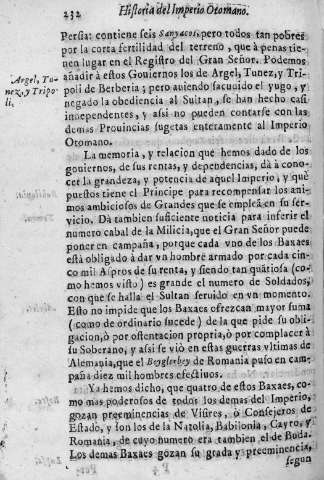 232 Historia del Imperio Otomano.
Persia: contiene seis Sanyacos, pero todos tan pobres
por la corta fertilidad del terreno, que à penas tie-
nen lugar en el Registro del Gran Señor. Podemos
Argel, Tu-
nez, y Tripo-
li.
añadir à estos Gouiernos los de Argel, Tunez, y Tri-
poli de Berberia; pero auiendo sacudido el yugo, y
negado la obediencia al Sultan, se han hecho casi
independentes, y assi no pueden contarse con las
demas Prouincias sugetas enteramente al Imperio
Otomano.
La memoria, y relacion que hemos dado de los
gouiernos, de sus rentas, y dependencias, dà à cono-
cer la grandeza, y potencia de aquel Imperio, y què
puestos tiene el Principe para recompensar los ani-
mos ambiciosos de Grandes que se empleã en su ser-
vicio. Dà tambien suficiente noticia para inferir el
numero cabal de la Milicia, que el Gran Señor puede
poner en campaña, porque cada vno de los Baxaes
està obligado à dar vn hombre armado por cada cin-
co mil Aspros de su renta, y siendo tan quãtiosa (co-
mo hemos visto) es grande el numero de Soldados,
con que se halla el Sultan seruido en vn momento.
Esto no impide que los Baxaes ofrezcan mayor suma
(como de ordinario sucede) de la que pide su obli-
gacion, ò por ostentacion propria, ò por complacer à
su Soberano, y assi se viò en estas guerras vltimas de
Alemania, que el Beyglerbey de Romania puso en cam-
paña diez mil hombres efectiuos.
Ya hemos dicho, que quatro de estos Baxaes, co-
mo mas poderosos de todos los demas del Imperio,
gozan preeminencias de Visires, ò Consejeros de
Estado, y son los de la Natolia, Babilonia, Cayro, y
Romania, de cuyo numero era tambien el de Buda.
Los demas Baxaes gozan su grada y preeminencia,
segun